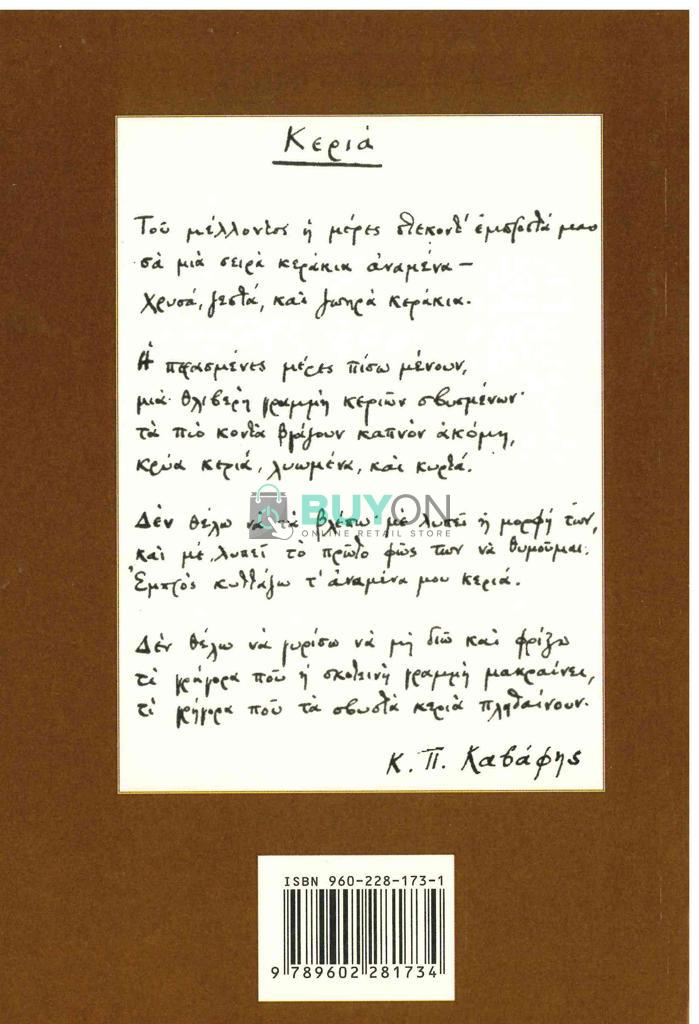 Κεριά
Τοῦ μέλλοντος ἡ μέρες στέκοντ' ἐμπροστά μας
σὰ μιὰ σειρὰ κεράκια ἀναμένα —
χρυσά, ζεστά, καὶ ζωηρὰ κεράκια.
Ἡ περασμένες μέρες πίσω μένουν,
μιὰ θλιβερὴ γραμμὴ κεριῶν σβυσμένων·
τὰ πιὸ κοντὰ βγάζουν καπνὸν ἀκόμη,
κρύα κεριά, λυωμένα, καὶ κυρτά.
Δὲν θέλω νὰ τὰ βλέπω· μὲ λυπεῖ ἡ μορφή των,
καὶ μὲ λυπεῖ τὸ πρῶτο φῶς των νὰ θυμοῦμαι.
Ἐμπρὸς κυττάζω τ' ἀναμένα μου κεριά.
Δὲν θέλω νὰ γυρίσω νὰ μὴ διῶ καὶ φρίξω
τί γρήγορα ποῦ ἡ σκοτεινὴ γραμμὴ μακραίνει,
τί γρήγορα ποῦ τὰ σβυστὰ κεριὰ πληθαίνουν.
Κ. Π. Καβάφης
BUYON
ONLINE RETAIL STORE
ISBN 960-228-173-1
9 789602 281734